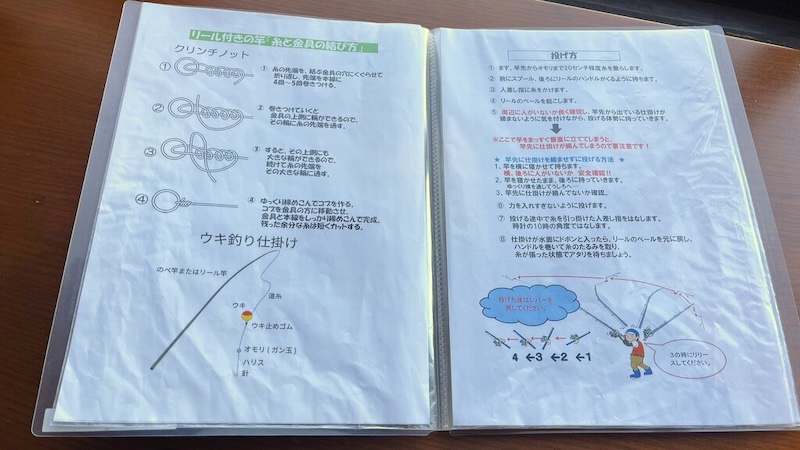 リール付きの竿「糸と金具の結び方」
クリンチノット
① 糸の先端を、結ぶ金具の穴にくぐらせて
折り返し、先端を本線に
4回～5回巻きつける。
② 巻きつけていくと
金具の上側に輪ができるので、
その輪に糸の先端を通す。
③ すると、その上側にも
大きな輪ができるので、
続けて糸の先端を
その大きな輪に通す。
④ ゆっくり締めこんでコブを作る。
コブを金具の方に移動させ、
金具と本線をしっかり締めこんで完成。
残った余分な糸は短くカットする。
①
②
③
④
ウキ釣り仕掛け
のべ竿またはリール竿
道糸
ウキ
ウキ止めゴム
オモリ（ガン玉）
ハリス
針
投げ方
① まず、竿先からオモリまで20センチ程度糸を垂らします。
② 前にスプール、後ろにリールのハンドルがくるように持ちます。
③ 人差し指に糸をかけます。
④ リールのベールを起こします。
⑤ 周辺に人がいないか良く確認し、竿先から出ている仕掛けが
絡まないように気を付けながら、投げる体勢に持っていきます。
※ここで竿をまっすぐ垂直に立ててしまうと、
竿先に仕掛けが絡んでしまうので要注意です！
★ 竿先に仕掛けを絡ませずに投げる方法 ★
1、竿を横に寝かせて持ちます。
横、後ろに人がいないか 安全確認!!
2、竿を寝かせたまま、後ろに持っていきます。
ゆっくり横を通してうしろへ…
3、竿先に仕掛けが絡んでないか確認。
⑥ 力を入れすぎないように投げます。
⑦ 投げる途中で糸を引っ掛けた人差し指をはなします。
時計の10時の角度ではなします。
⑧ 仕掛けが水面にドボンと入ったら、リールのベールを元に戻し、
ハンドルを巻いて糸のたるみを取り、
糸が張った状態でアタリを待ちましょう。
投げた後はレバーを
戻してください。
4 ←3 ←2 ←1
3の時にリリー
スしてください。